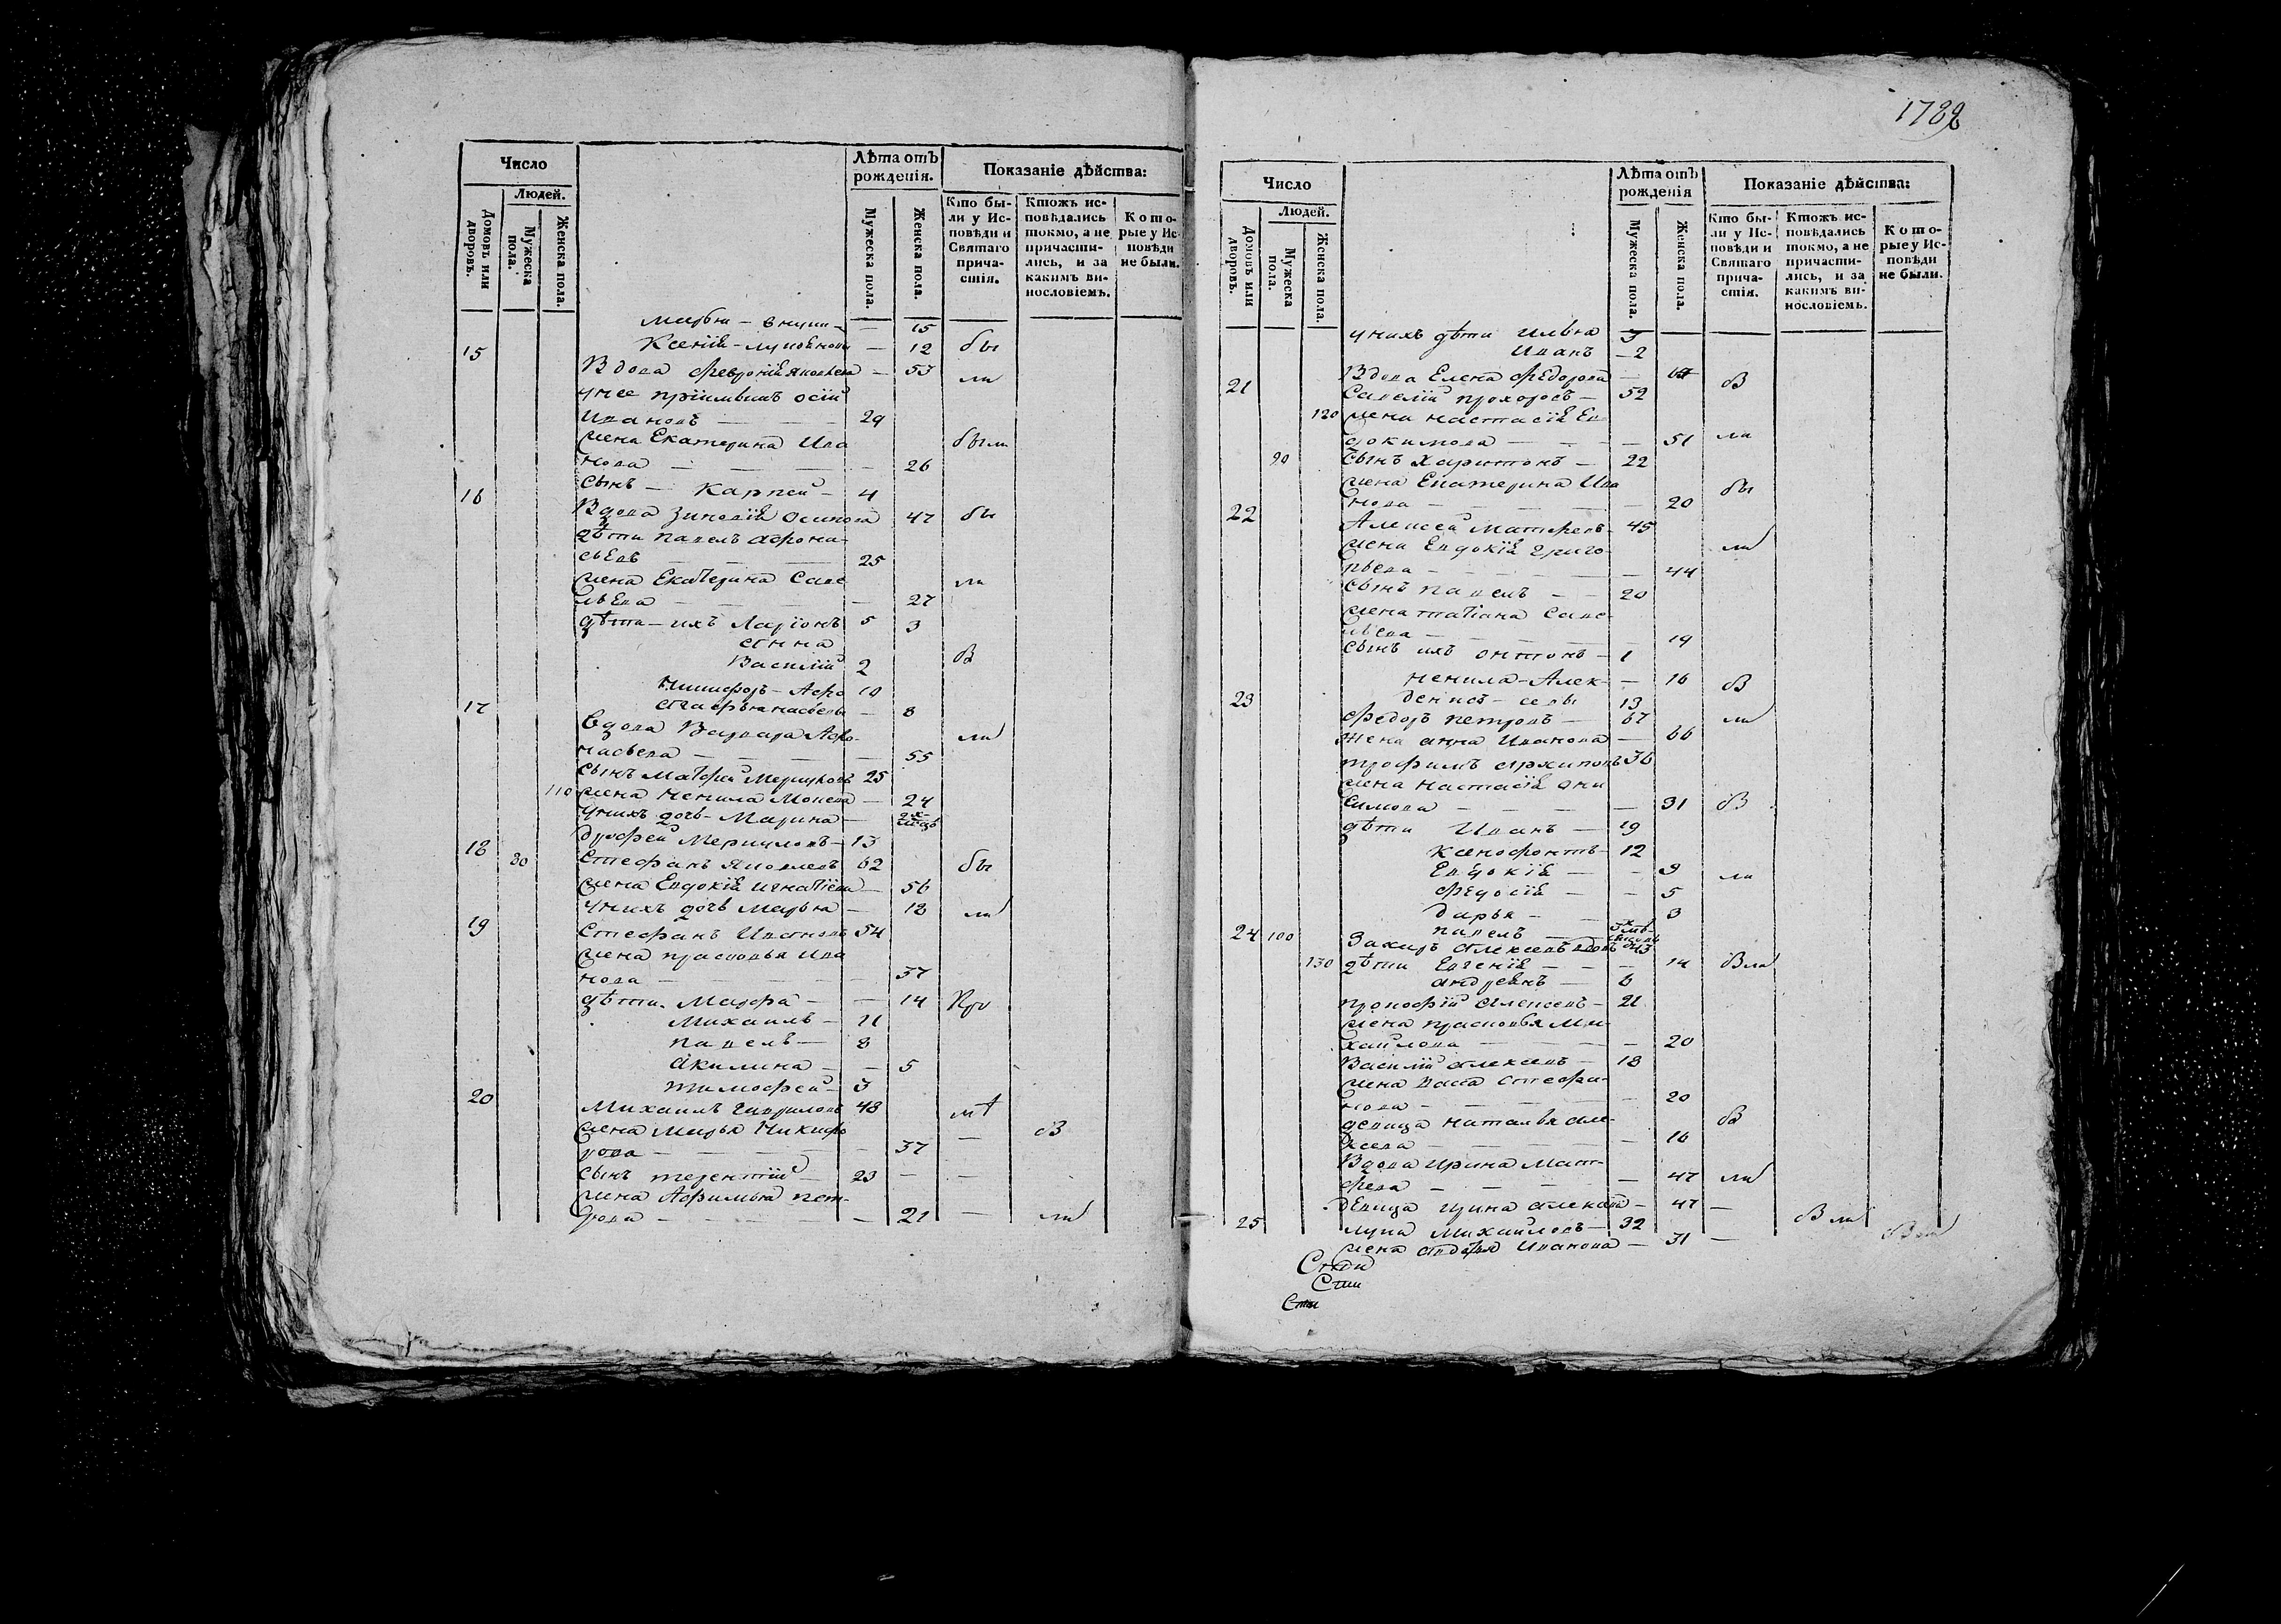 Число
Людей.
Домовъ или дворовъ.
Мужеска пола.
Женска пола.
Лѣта отъ рожденія.
Мужеска пола.
Женска пола.
Показаніе дѣйства:
Кто бы-
ли у Ис-
повѣди и
Святаго
прича-
стія.
Ктожъ ис-
повѣдались
токмо, а не
причасти-
лись, и за
какимъ ви-
нословіемъ.
Кото-
рые у Ис-
повѣди
не были.
Марья — — 15
Ксенія — — 12 бы
15 Вдова Феврониія Яковлева — 53 ли
у нее пріимышъ осій
Ивановъ — 29
жена Екатерина Ива были
нова — 26
сынъ — Карпей — 4
16 Вдова Зиновія Осипова 47 бы
дѣти Павелъ Афона-
сьевъ 25
жена Екатерина Саве ли
льева — 27
дѣти — ихъ Ларіонъ 5 3
Анна
Василій 2 бы
Никифоръ — Афо 10
Агафья насьевы — 8
17 Вдова Варвара Афо- ли
насьева — 55
сынъ Матфей Меркуловъ 25
110 жена Ненила Мокеева — 24
у нихъ дочь — Марина —
Дорофей Меркуловъ — 13
18 80 Стефанъ Яковлевъ 62 бы
жена Евдокія Игнатіева — 56
у нихъ дочь Марья — 12 ли
19 Стефанъ Ивановъ 54
жена Прасковья Ива
нова — 37
дѣти. Марфа — — 14
Михаилъ — 11
Павелъ — 8
Акилина — — 5
Тимофей — 3
20 Михаилъ Гавриловъ 48
жена Марья Никифо — бы
рова — 37
сынъ Терентій — 23 — —
жена Афимья Пет-
рова — — 21 — ли
1782
Число
Людей.
Домовъ или дворовъ.
Мужеска пола.
Женска пола.
Лѣта отъ рожденія
Мужеска пола.
Женска пола.
Показаніе дѣйства:
Кто бы-
ли у Ис-
повѣди и
Святаго
прича-
стія.
Ктожъ ис-
повѣдались
токмо, а не
причасти-
лись, и за
какимъ ви-
нословіемъ.
Кото-
рые у Ис-
повѣди
не были.
у нихъ дѣти Илья 3
Иванъ — 2
Вдова Елена Федорова — бы
21 Савелій Прохоровъ — 52
120 жена Настасія Ев
докимова — — 51 ли
90 сынъ Харитонъ — 22
жена Екатерина Ива бы
нова — — 20
22 Алексей Матфеевъ — 45
жена Евдокія Григо- ли
рьева — — 44
сынъ Павелъ — 20
жена Татіана Саве-
льева — — 19
сынъ ихъ Антонъ — 1
Ненила — Алек- — 16 бы
Денисъ — сѣевы 13
23 Федоръ Петровъ — 67 ли
Жена Анна Иванова — 66
Трофимъ Архиповъ 36
жена Настасія Они
симова — — 31 бы
дѣти Иванъ — 19
Ксенофонтъ — 12
Евдокія — — 9 ли
Федосія — — 5
Дарья — — 3
Павелъ —
24 100 Захаръ Алексеевъ вдовъ 43
130 дѣти Евгенія — — 14 были
Андреянъ — 6
Прокофій Алексеевъ — 21
жена Прасковья Ми-
хайлова — 20
Василій Алексеевъ — 18
жена Васса Стефа-
нова — — 20
девица Наталья Але- бы
ксеева — — 16
Вдова Ирина Мат-
феева — — 47 ли
девица Ирина Алексеева — 47 —
25 Лука Михайловъ — 32 были
жена Авдотья Иванова — 31 —